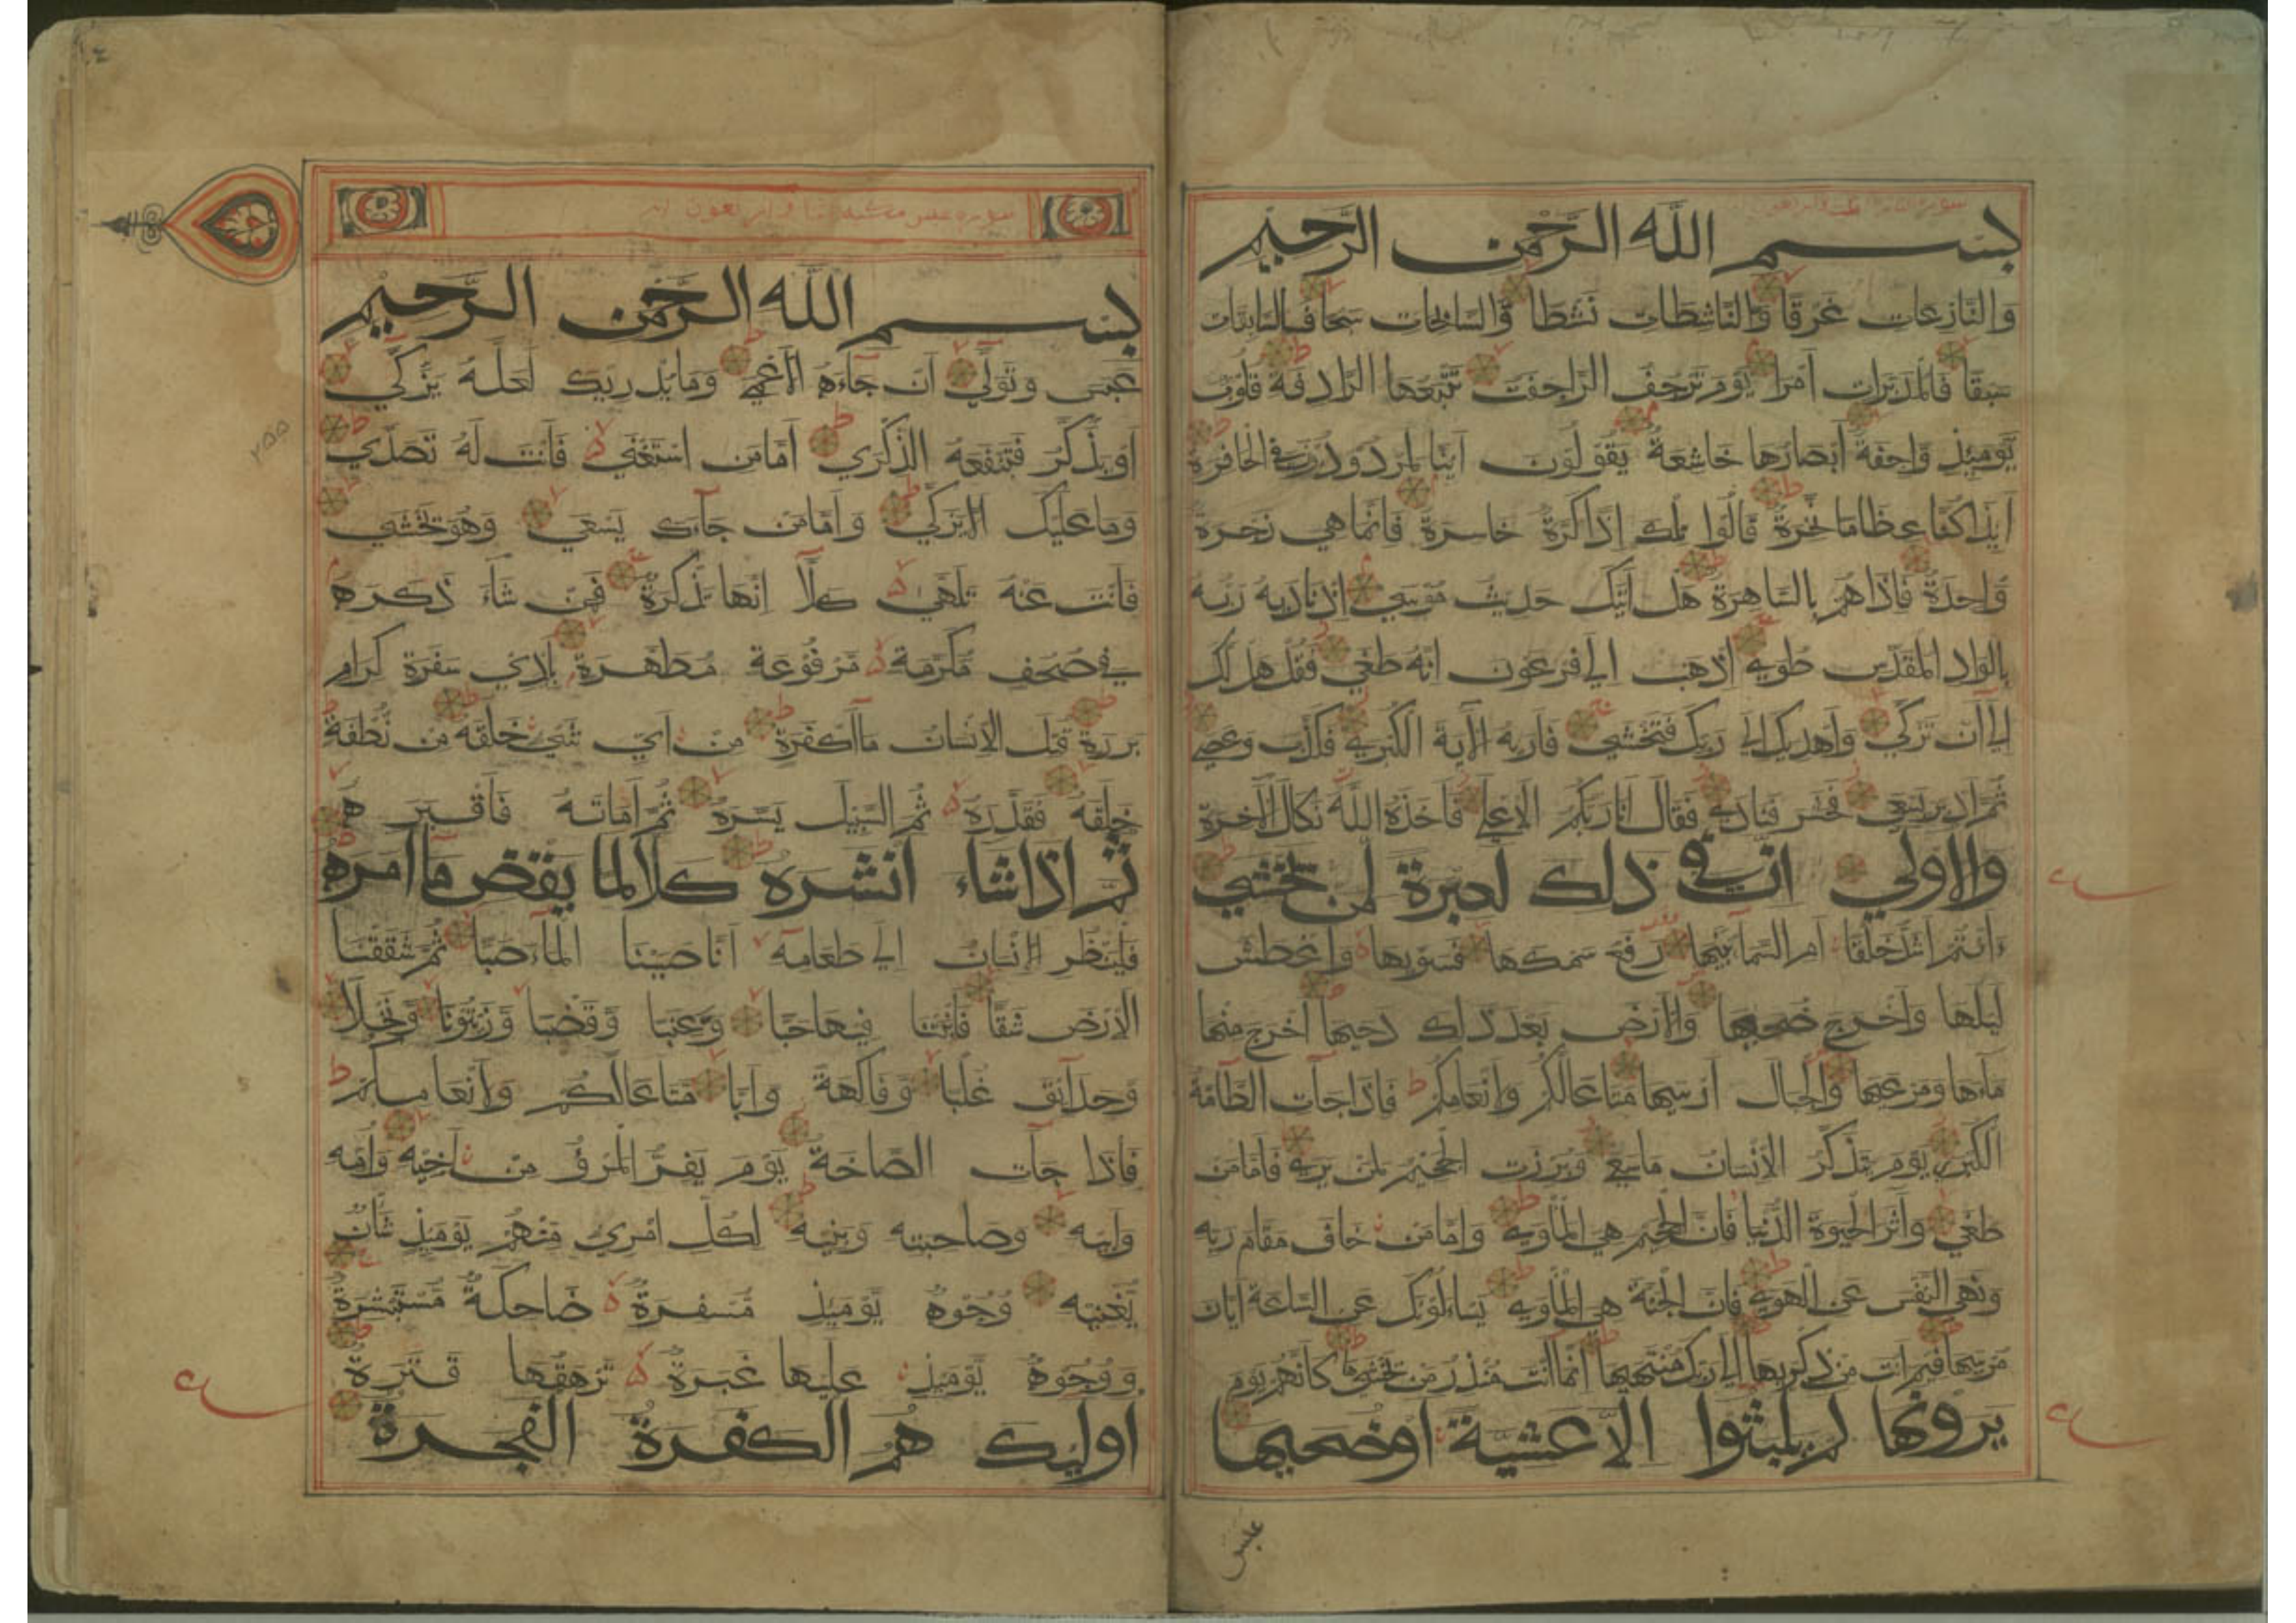 بسم الله الرحمن الرحيم
والنازعات غرقا والناشطات نشطا والسابحات سبحا فالسابقات
سبقا فالمدبرات امرا يوم ترجف الراجفة تتبعها الرادفة قلوب
يوميذ واجفة ابصارها خاشعة يقولون اينا لمردودون في الحافرة
ايذا كنا عظاما نخرة قالوا تلك اذا كرة خاسرة فانما هي زجرة
واحدة فاذا هم بالساهرة هل اتيك حديث موسي اذ ناديه ربه
بالواد المقدس طوي اذهب الي فرعون انه طغي فقل هل لك
الي ان تزكي واهديك الي ربك فتخشي فاريه الاية الكبري فكذب وعصي
ثم ادبر يسعي فحشر فنادي فقال انا ربكم الاعلي فاخذه الله نكال الاخرة
والاولي ان في ذلك لعبرة لمن يخشي
ءانتم اشد خلقا ام السما بنيها رفع سمكها فسويها واغطش
ليلها واخرج ضحيها والارض بعد ذلك دحيها اخرج منها
ماءها ومرعيها والجبال ارسيها متاعا لكم ولانعامكم فاذا جات الطامة
الكبري يوم يتذكر الانسان ما سعي وبرزت الجحيم لمن يري فاما من
طغي واثر الحيوة الدنيا فان الجحيم هي الماوي واما من خاف مقام ربه
ونهي النفس عن الهوي فان الجنة هي الماوي يساءلونك عن الساعة ايان
مرسيها فيم انت من ذكريها الي ربك منتهيها انما انت منذر من يخشيها كانهم يوم
يرونها لم يلبثوا الا عشية او ضحيها
عبس
سورة عبس اثنا واربعون اية
بسم الله الرحمن الرحيم
عبس وتولي ان جاءه الاعمي وما يدريك لعله يزكي
او يذكر فتنفعه الذكري اما من استغني فانت له تصدي
وما عليك الا يزكي واما من جاءك يسعي وهو يخشي
فانت عنه تلهي كلا انها تذكرة فمن شاء ذكره
في صحف مكرمة مرفوعة مطهرة بايدي سفرة كرام
بررة قتل الانسان ما اكفره من اي شي خلقه من نطفة
خلقه فقدره ثم السبيل يسره ثم اماته فاقبره
ثم اذا شاء انشره كلا لما يقض ما امره
فلينظر الانسان الي طعامه انا صببنا الماء صبا ثم شققنا
الارض شقا فانبتنا فيها حبا وعنبا وقضبا وزيتونا ونخلا
وحدآئق غلبا وفاكهة وابا متاعا لكم ولانعامكم
فاذا جات الصاخة يوم يفر المرؤ من اخيه وامه
وابيه وصاحبته وبنيه لكل امري منهم يوميذ شان
يغنيه وجوه يوميذ مسفرة ضاحكة مستبشرة
ووجوه يوميذ عليها غبرة ترهقها قترة
اوليك هم الكفرة الفجرة
۲۵۵